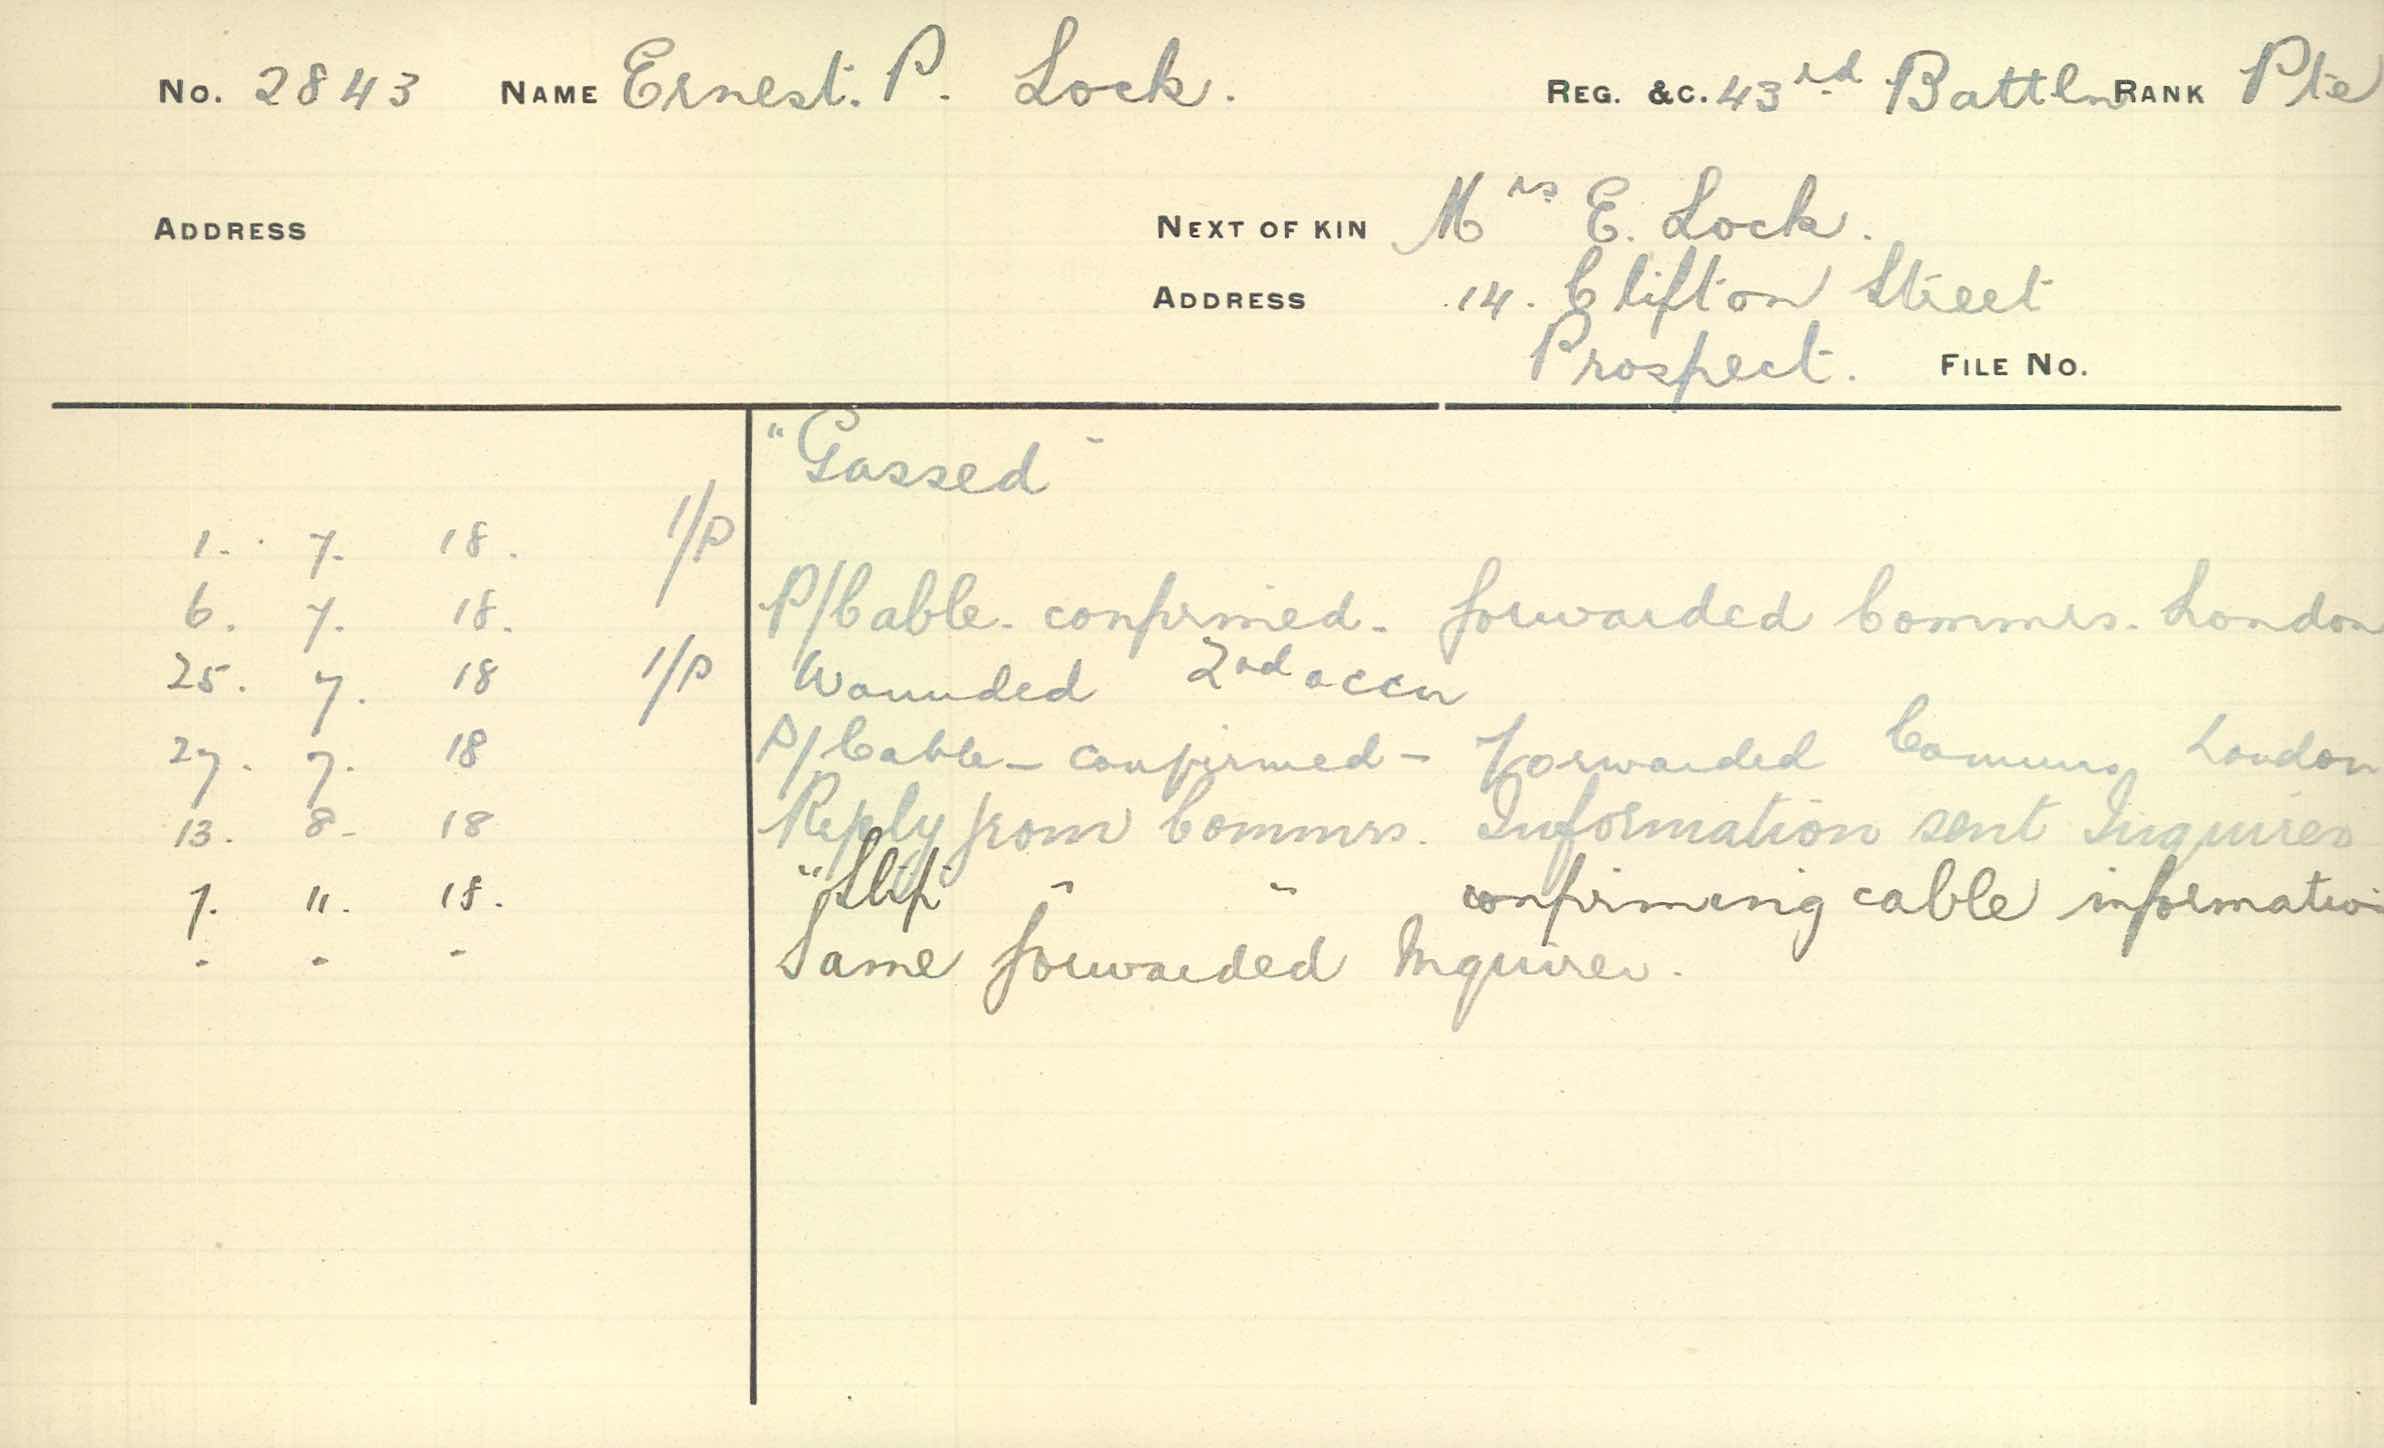 No. 2843 NAME Ernest. P. Lock. REG. &C. 43rd Battln RANK Pte
ADDRESS NEXT OF KIN Mrs E. Lock.
ADDRESS 14. Clifton Street
Prospect. FILE No.
"Gassed"
1. 7. 18. 1/P
6. 7. 18. P/Cable - confirmed - forwarded Commrs. London
25. 7. 18 1/P Wounded 2nd occn
27. 7. 18 P/Cable - confirmed - forwarded Commrs London
13. 8 - 18 Reply from Commrs. Information sent Inquirer
7. 11. 18. "Slip" " " confirming cable information
" " " Same forwarded Inquirer.